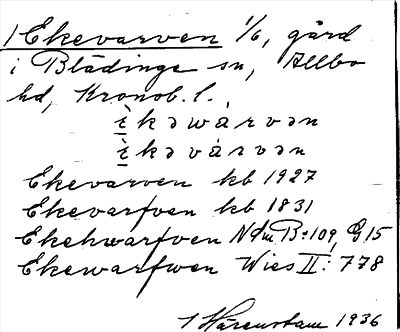 1 Ekevarven 1/6, gård
i Blädinge sn, Allbo
hd, Kronob. l.
èkəwárvən
èkəvárvən
Ekevarven kb 1927
Ekevarfven kb 1831
Ekehwarfven N&m B:109, G 15
Ekewarfwen Wies II: 778
1 Härenstam 1936